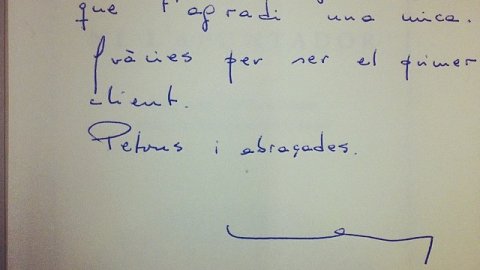 que t'agradi una mica.
Gràcies per ser el primer
client.
Petons i abraçades.